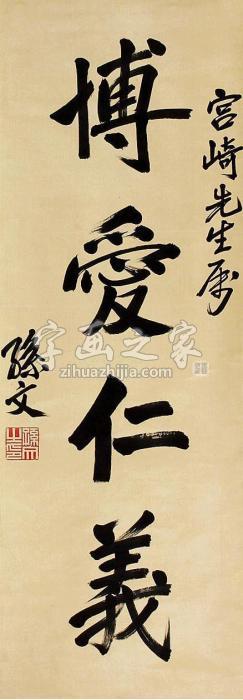 宫崎先生属
博愛仁義
孫文
孫文之印
字画之家
zihuazhijia.com